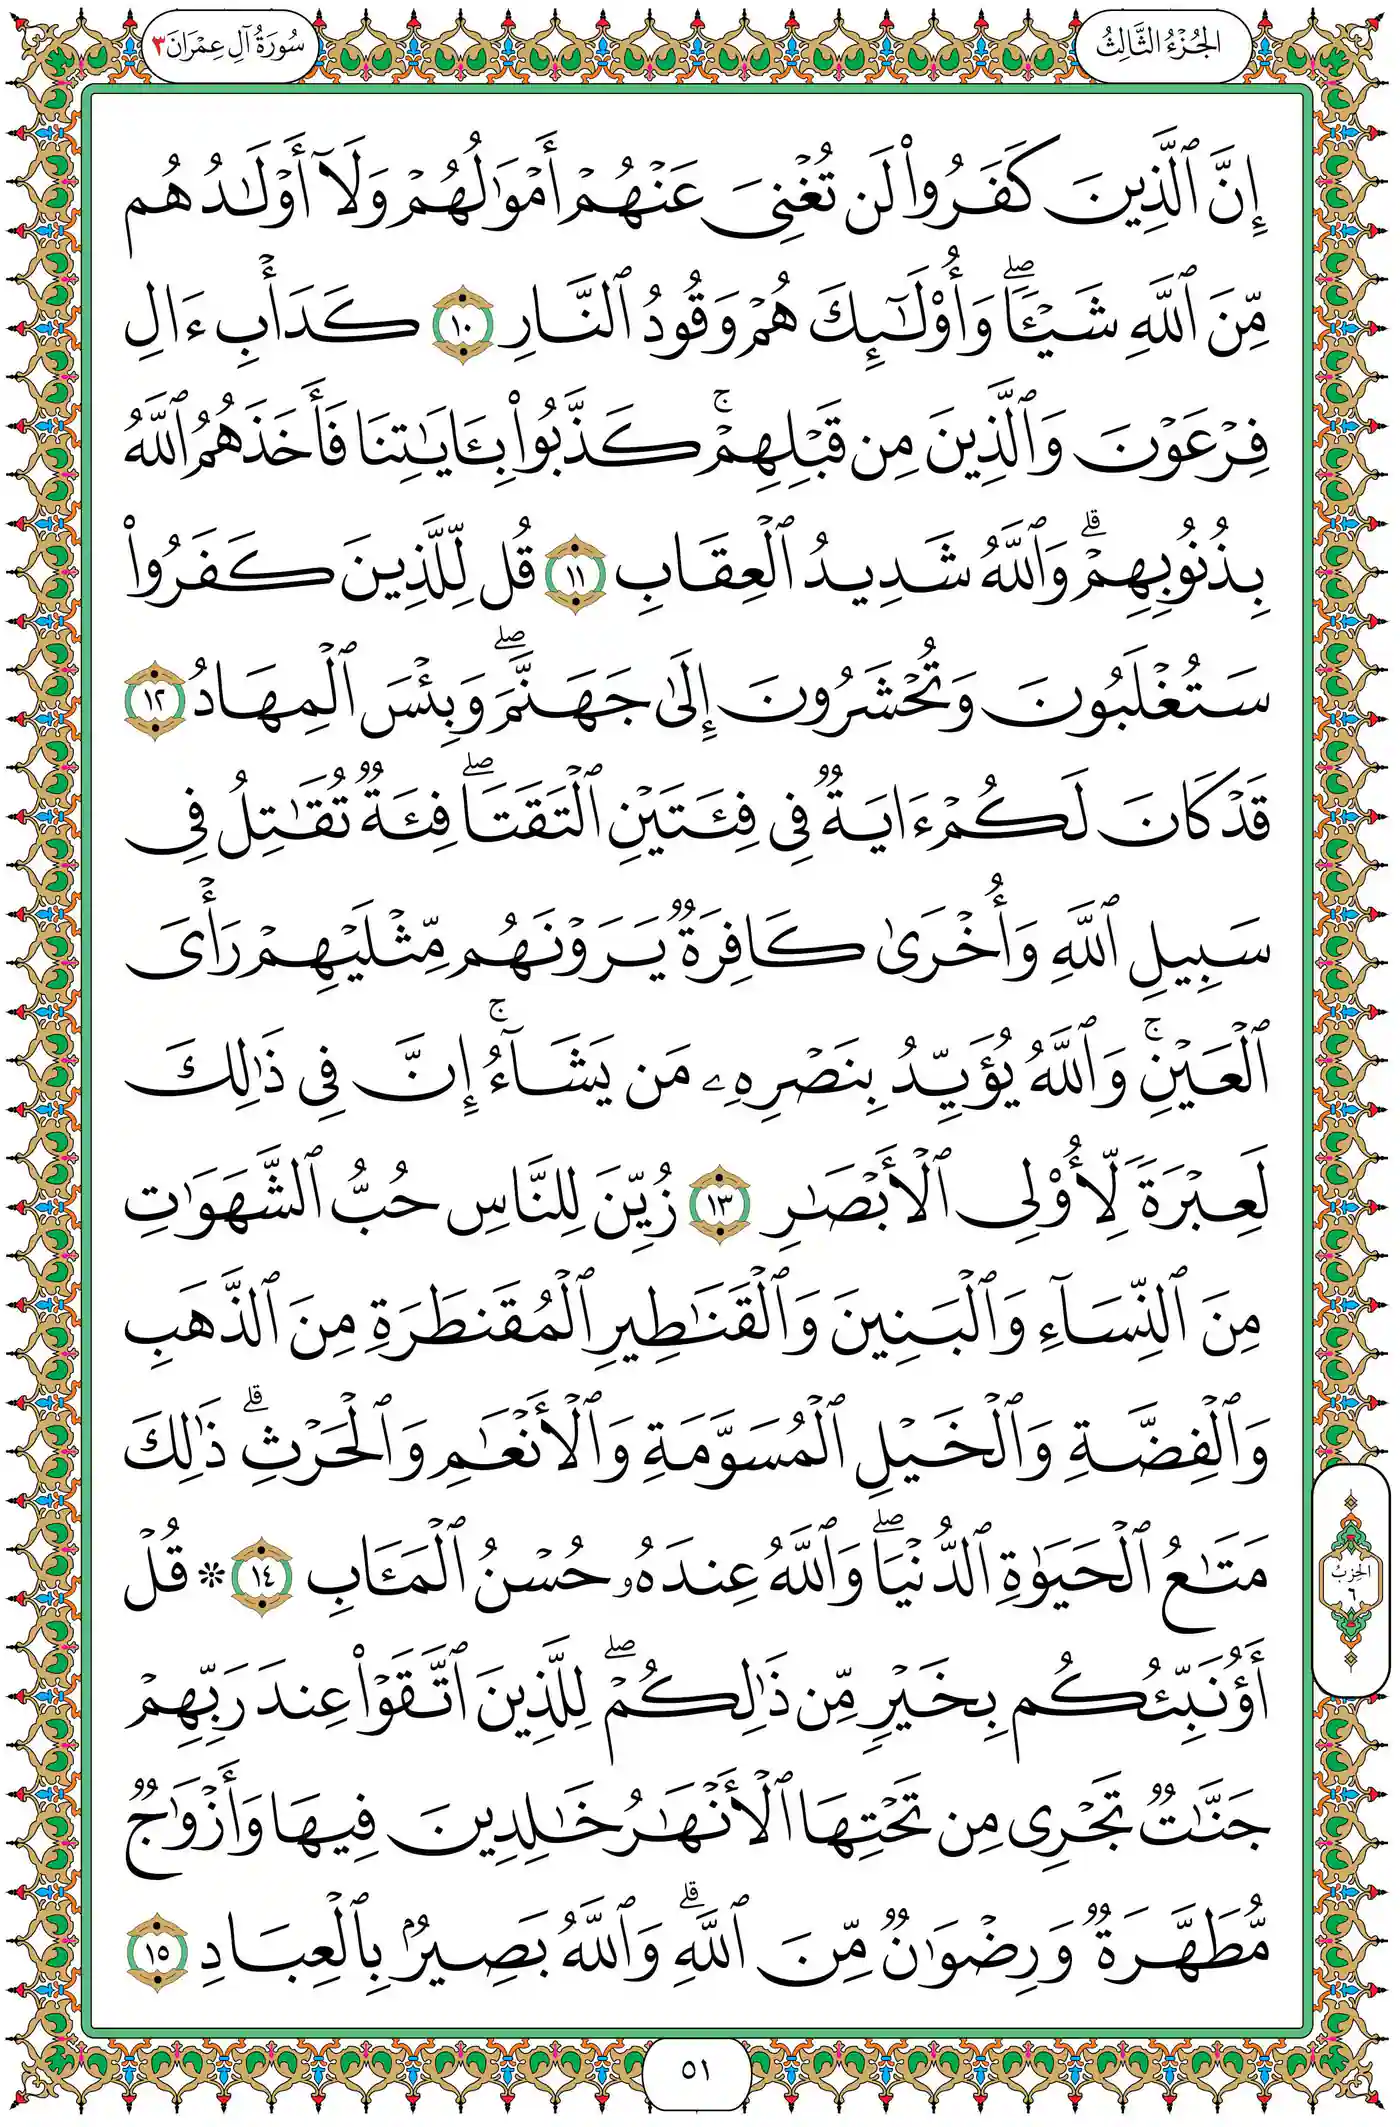 الجُزْءُ الثَّالِثُ
سُورَةُ آلِ عِمْرَانَ ٣
إِنَّ ٱلَّذِينَ كَفَرُوا۟ لَن تُغْنِىَ عَنْهُمْ أَمْوَٰلُهُمْ وَلَآ أَوْلَٰدُهُم
مِّنَ ٱللَّهِ شَيْـًٔاۖ وَأُو۟لَٰٓئِكَ هُمْ وَقُودُ ٱلنَّارِ ١٠ كَدَأْبِ ءَالِ
فِرْعَوْنَ وَٱلَّذِينَ مِن قَبْلِهِمْۚ كَذَّبُوا۟ بِـَٔايَٰتِنَا فَأَخَذَهُمُ ٱللَّهُ
بِذُنُوبِهِمْۗ وَٱللَّهُ شَدِيدُ ٱلْعِقَابِ ١١ قُل لِّلَّذِينَ كَفَرُوا۟
سَتُغْلَبُونَ وَتُحْشَرُونَ إِلَىٰ جَهَنَّمَۖ وَبِئْسَ ٱلْمِهَادُ ١٢
قَدْ كَانَ لَكُمْ ءَايَةٌ فِى فِئَتَيْنِ ٱلْتَقَتَاۖ فِئَةٌ تُقَٰتِلُ فِى
سَبِيلِ ٱللَّهِ وَأُخْرَىٰ كَافِرَةٌ يَرَوْنَهُم مِّثْلَيْهِمْ رَأْىَ
ٱلْعَيْنِۚ وَٱللَّهُ يُؤَيِّدُ بِنَصْرِهِۦ مَن يَشَآءُۚ إِنَّ فِى ذَٰلِكَ
لَعِبْرَةً لِّأُو۟لِى ٱلْأَبْصَٰرِ ١٣ زُيِّنَ لِلنَّاسِ حُبُّ ٱلشَّهَوَٰتِ
مِنَ ٱلنِّسَآءِ وَٱلْبَنِينَ وَٱلْقَنَٰطِيرِ ٱلْمُقَنطَرَةِ مِنَ ٱلذَّهَبِ
وَٱلْفِضَّةِ وَٱلْخَيْلِ ٱلْمُسَوَّمَةِ وَٱلْأَنْعَٰمِ وَٱلْحَرْثِۗ ذَٰلِكَ
مَتَٰعُ ٱلْحَيَوٰةِ ٱلدُّنْيَاۖ وَٱللَّهُ عِندَهُۥ حُسْنُ ٱلْمَـَٔابِ ١٤ * قُلْ
أَؤُنَبِّئُكُم بِخَيْرٍ مِّن ذَٰلِكُمْۖ لِلَّذِينَ ٱتَّقَوْا۟ عِندَ رَبِّهِمْ
جَنَّٰتٌ تَجْرِى مِن تَحْتِهَا ٱلْأَنْهَٰرُ خَٰلِدِينَ فِيهَا وَأَزْوَٰجٌ
مُّطَهَّرَةٌ وَرِضْوَٰنٌ مِّنَ ٱللَّهِۗ وَٱللَّهُ بَصِيرٌۢ بِٱلْعِبَادِ ١٥
الحِزْبُ
٦
٥١